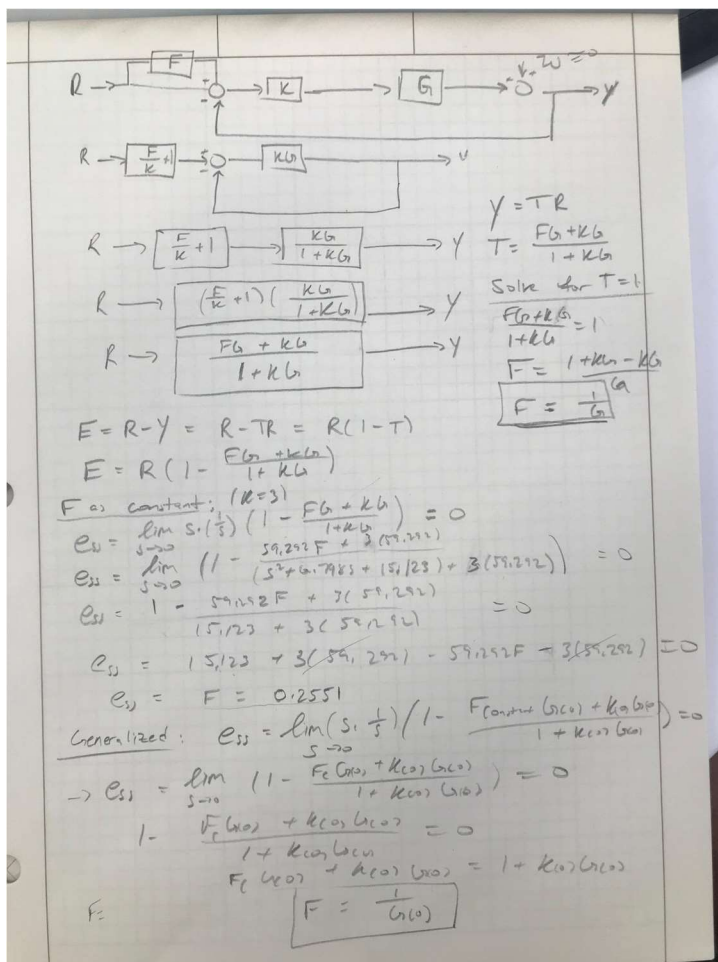 F
R → K → G → W=0 Y
R → F/K +1 → KG → Y
Y = TR
R → F/K + 1 → KG/(1+KG) → Y
T = (FG+KG)/(1+KG)
Solve for T=1
R → (F/K +1)(KG/(1+KG)) → Y
(FG+KG)/(1+KG) = 1
R → (FG + KG)/(1+KG) → Y
F = (1+KG-KG)/G
F = 1/G
E = R-Y = R-TR = R(1-T)
E = R(1 - (FG+KG)/(1+KG))
F as constant: (K=3)
ess = lim s→0 s·(1/s)(1 - (FG+KG)/(1+KG)) = 0
ess = lim s→0 (1 - (59.292F + 3(59.292))/((s²+6.798s + 15.123) + 3(59.292))) = 0
ess = 1 - (59.292F + 3(59.292))/(15.123 + 3(59.292)) = 0
ess = 15.123 + 3(59.292) - 59.292F - 3(59.292) = 0
ess = F = 0.2551
Generalized: ess = lim s→0 (s·1/s)(1 - (Fconstant G(0) + K(0)G(0))/(1 + K(0)G(0))) = 0
→ ess = lim s→0 (1 - (Fc G(0) + K(0)G(0))/(1 + K(0)G(0))) = 0
1 - (Fc G(0) + K(0)G(0))/(1 + K(0)G(0)) = 0
Fc G(0) + K(0)G(0) = 1 + K(0)G(0)
F= F = 1/G(0)